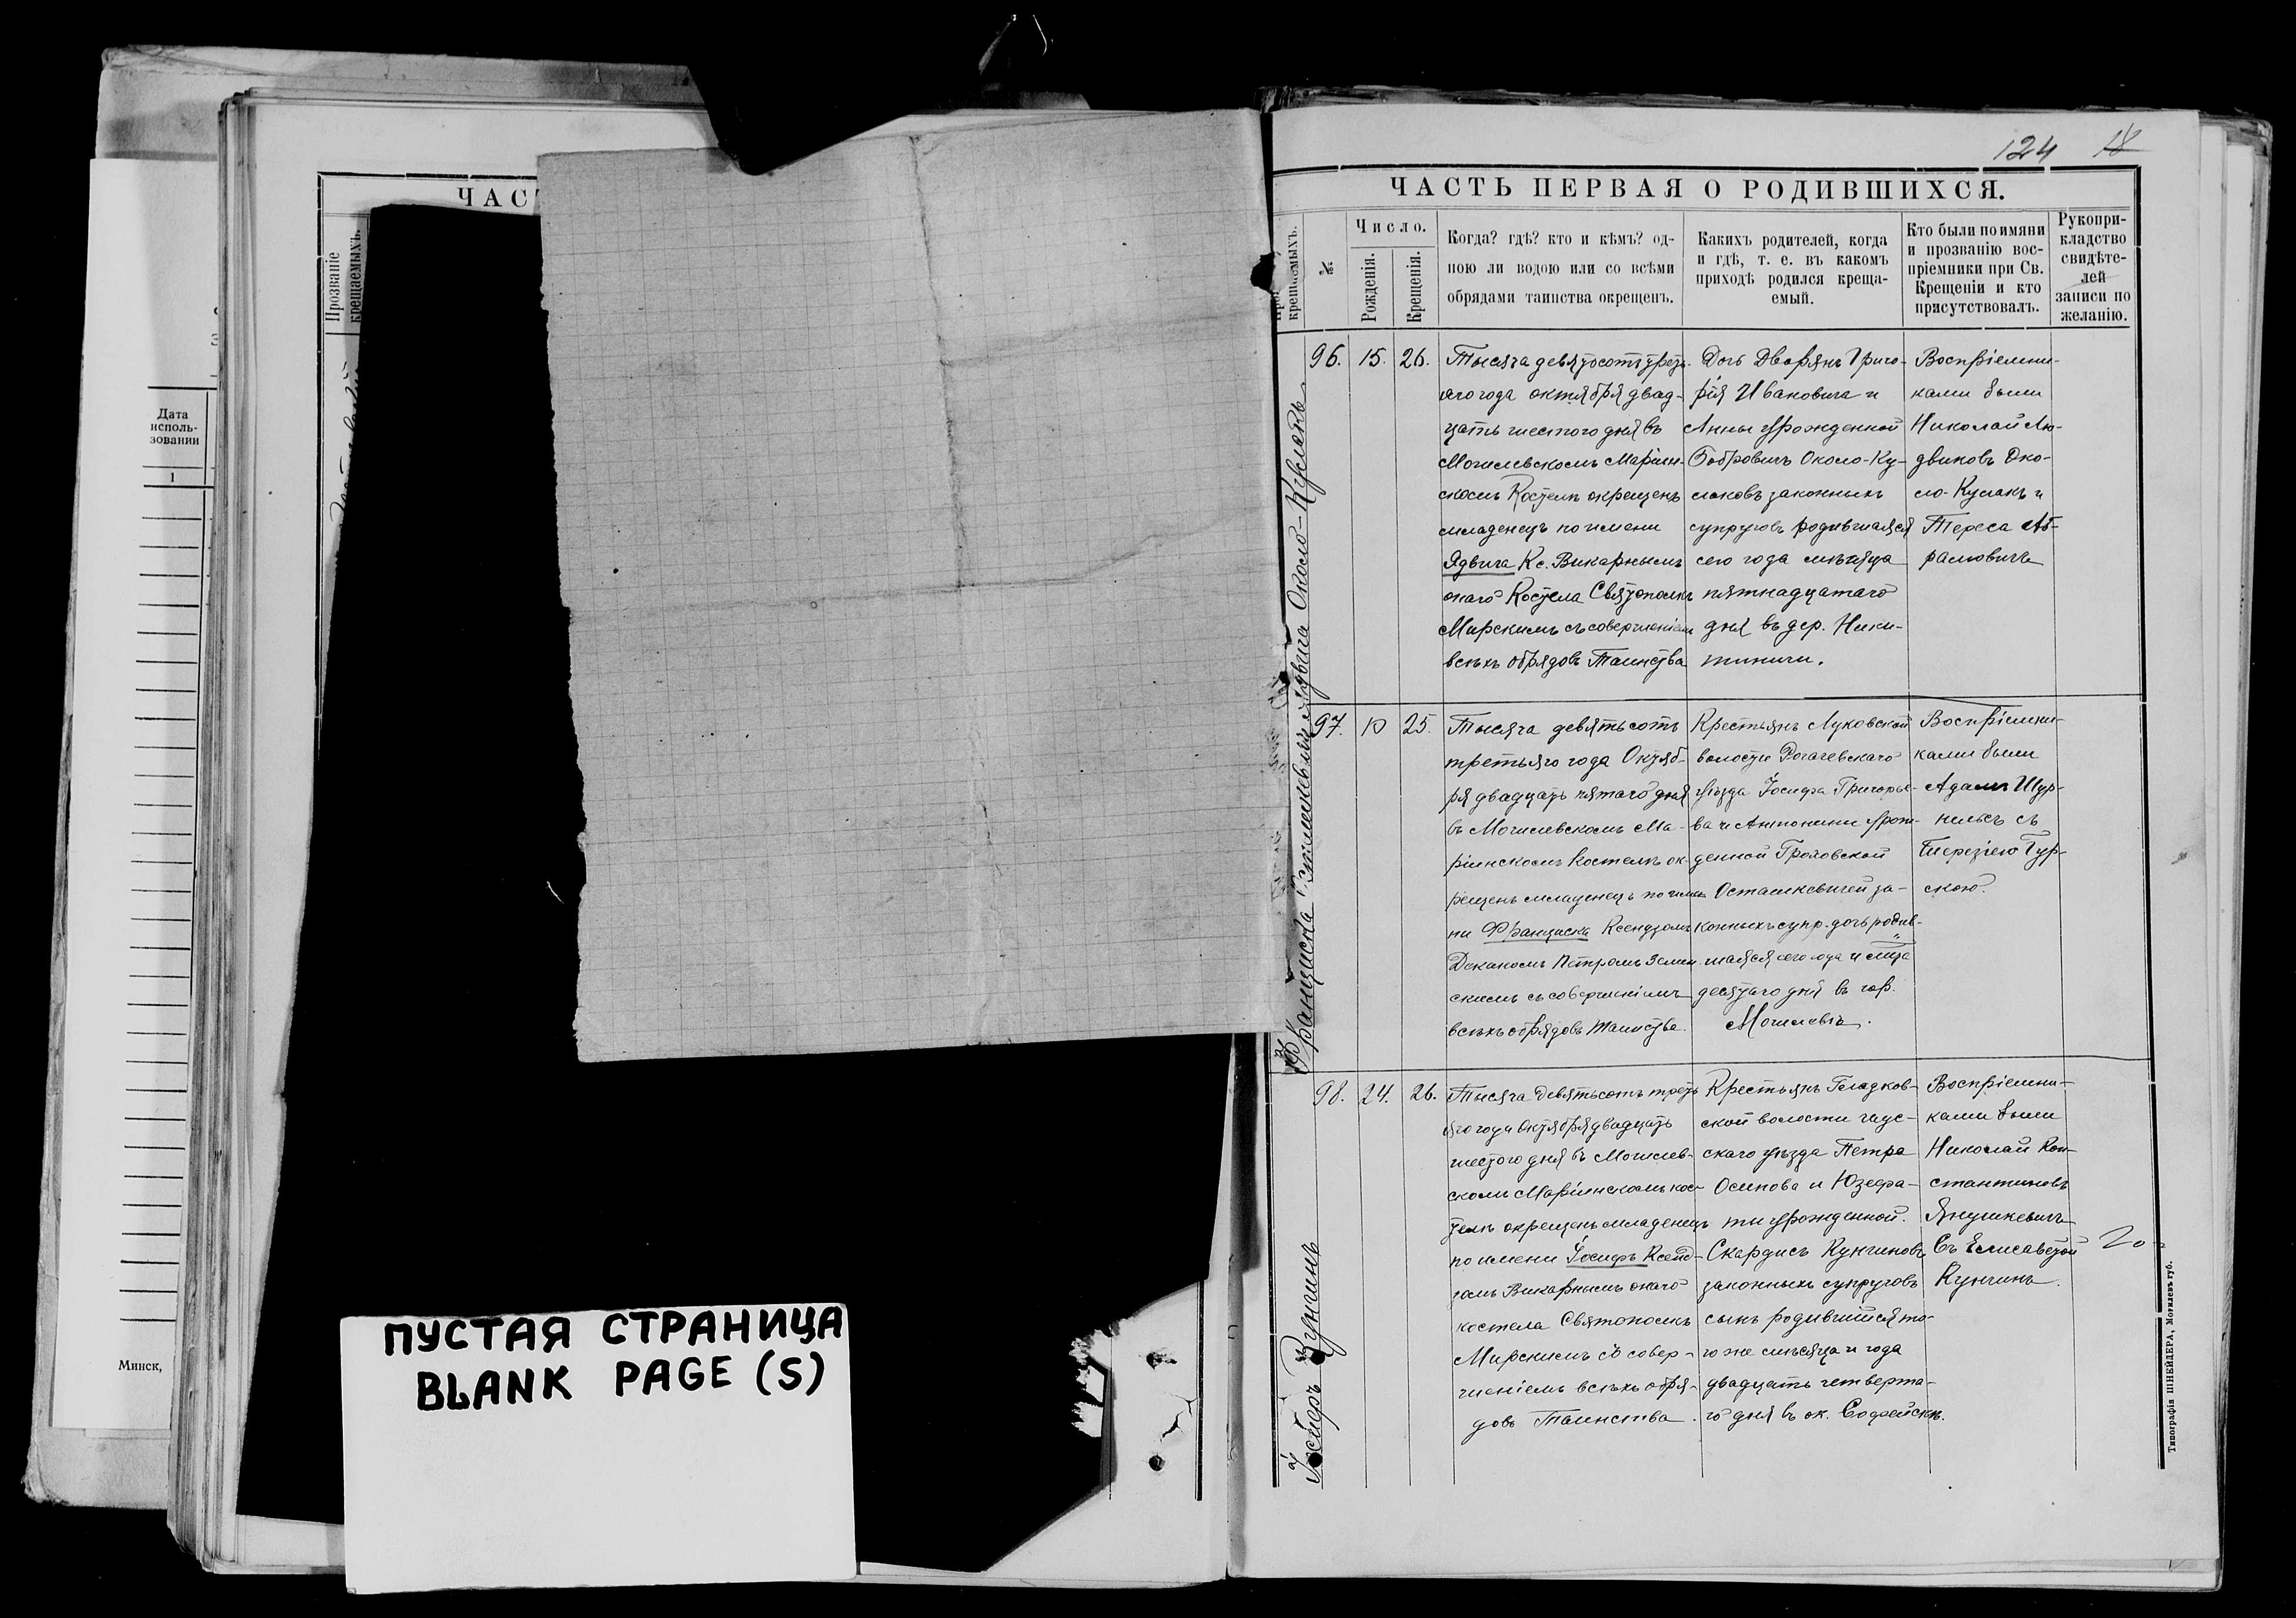 Дата
исполь-
зовании
1
Минск,
ЧАС
Прозваніе
крещаемыхъ.
ПУСТАЯ СТРАНИЦА
BLANK PAGE (S)
124 18
ЧАСТЬ ПЕРВАЯ О РОДИВШИХСЯ.
крещаемыхъ.
№
Число.
Рожденія.
Крещенія.
Когда? гдѣ? кто и кѣмъ? од-
ною ли водою или со всѣми
обрядами таинства окрещенъ.
Какихъ родителей, когда
и гдѣ, т. е. въ какомъ
приходѣ родился креща-
емый.
Кто были по имяни
и прозванію вос-
пріемники при Св.
Крещеніи и кто
присутствовалъ.
Рукопри-
кладство
свидѣте-
лей
записи по
желанію.
Ядвига Около-Кулакъ
96. 15. 26.
Тысяча девятьсот треть-
яго года октября двад-
цать шестого дня въ
Могилевскомъ Маріин-
скомъ Костелѣ окрещенъ
младенецъ по имени
Ядвига Кс. Викарнымъ
онаго Костела Святополкъ
Мирскимъ съ совершеніемъ
всѣхъ обрядовъ Таинства
Дочь Дворянъ Григо-
рія Ивановича и
Анны урожденной
Бобровичъ Около-Ку-
лаковъ законныхъ
супруговъ родившаяся
сего года мѣсяца
пятнадцатаго
дня въ дер. Ники-
тиничи.
Воспріемни-
ками были
Николай Лю-
двиковъ Око-
ло-Кулакъ и
Тереса Аб-
рамовичъ
Франциска
97. 10 25.
Тысяча девятьсотъ
третьяго года Октяб-
ря двадцать пятаго дня
въ Могилевскомъ Ма-
ріинскомъ Костелѣ ок-
рещенъ младенецъ по име-
ни Франциска Ксендзомъ
Деканомъ Петромъ Зелин
скимъ съ совершеніемъ
всѣхъ обрядовъ таинства.
Крестьянъ Луковской
волости Рогачевскаго
уѣзда Іосифа Григорье-
ва и Антонины урож-
денной
Осташкевичей за-
конныхъ супр. дочь родив-
шаяся сего года и мца
десятаго дня въ гор.
Могилевѣ.
Воспріемни-
ками были
Адамъ
съ
Терезіею Гур-
скою.
Іосифъ Кунчинъ
98. 24. 26.
Тысяча девятьсотъ треть
яго года Октября двадцать
шестого дня въ Могилев-
скомъ Маріинскомъ кос-
телѣ окрещенъ младенецъ
по имени Іосифъ Ксенд-
зомъ Викарнымъ онаго
костела Святополкъ
Мирскимъ со совер-
шеніемъ всѣхъ обря-
довъ Таинства.
Крестьянъ Гладков-
ской волости чаус-
скаго уѣзда Петра
Осипова и Юзефа-
ты урожденной.
Скардисъ Кунчиновъ
законныхъ супруговъ
сынъ родившійся то-
го же мѣсяца и года
двадцать четверта-
го дня въ ок. Софейскѣ.
Воспріемни-
ками были
Николай Кон-
стантиновъ
Янушкевичъ
Съ Елисаветой
Кунчинъ.
Типографія ШНЕЙДЕРА, Могилевъ губ.